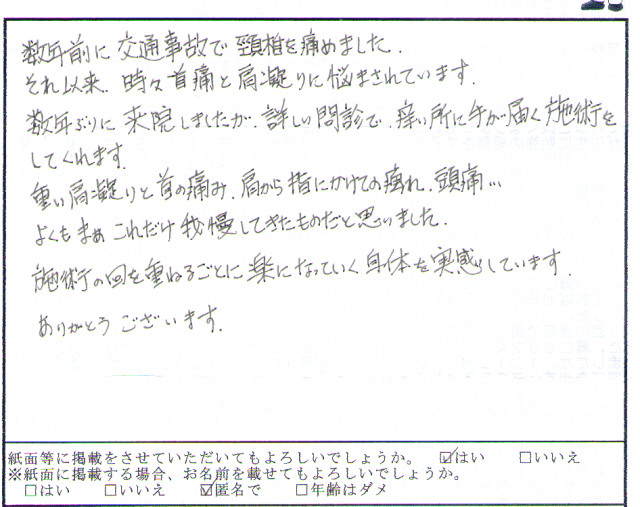 数年前に交通事故で頸椎を痛めました.
それ以来.時々首痛と肩凝りに悩まされています.
数年ぶりに来院しましたが.詳しい問診で.痒い所に手が届く施術を
してくれます.
重い肩凝りと首の痛み.肩から指にかけての痺れ.頭痛…
よくもまぁこれだけ我慢してきたものだと思いました.
施術の回を重ねるごとに楽になっていく身体を実感しています.
ありがとうございます.
紙面等に掲載をさせていただいてもよろしいでしょうか。 ☑はい □いいえ
※紙面に掲載する場合、お名前を載せてもよろしいでしょうか。
□はい □いいえ ☑匿名で □年齢はダメ